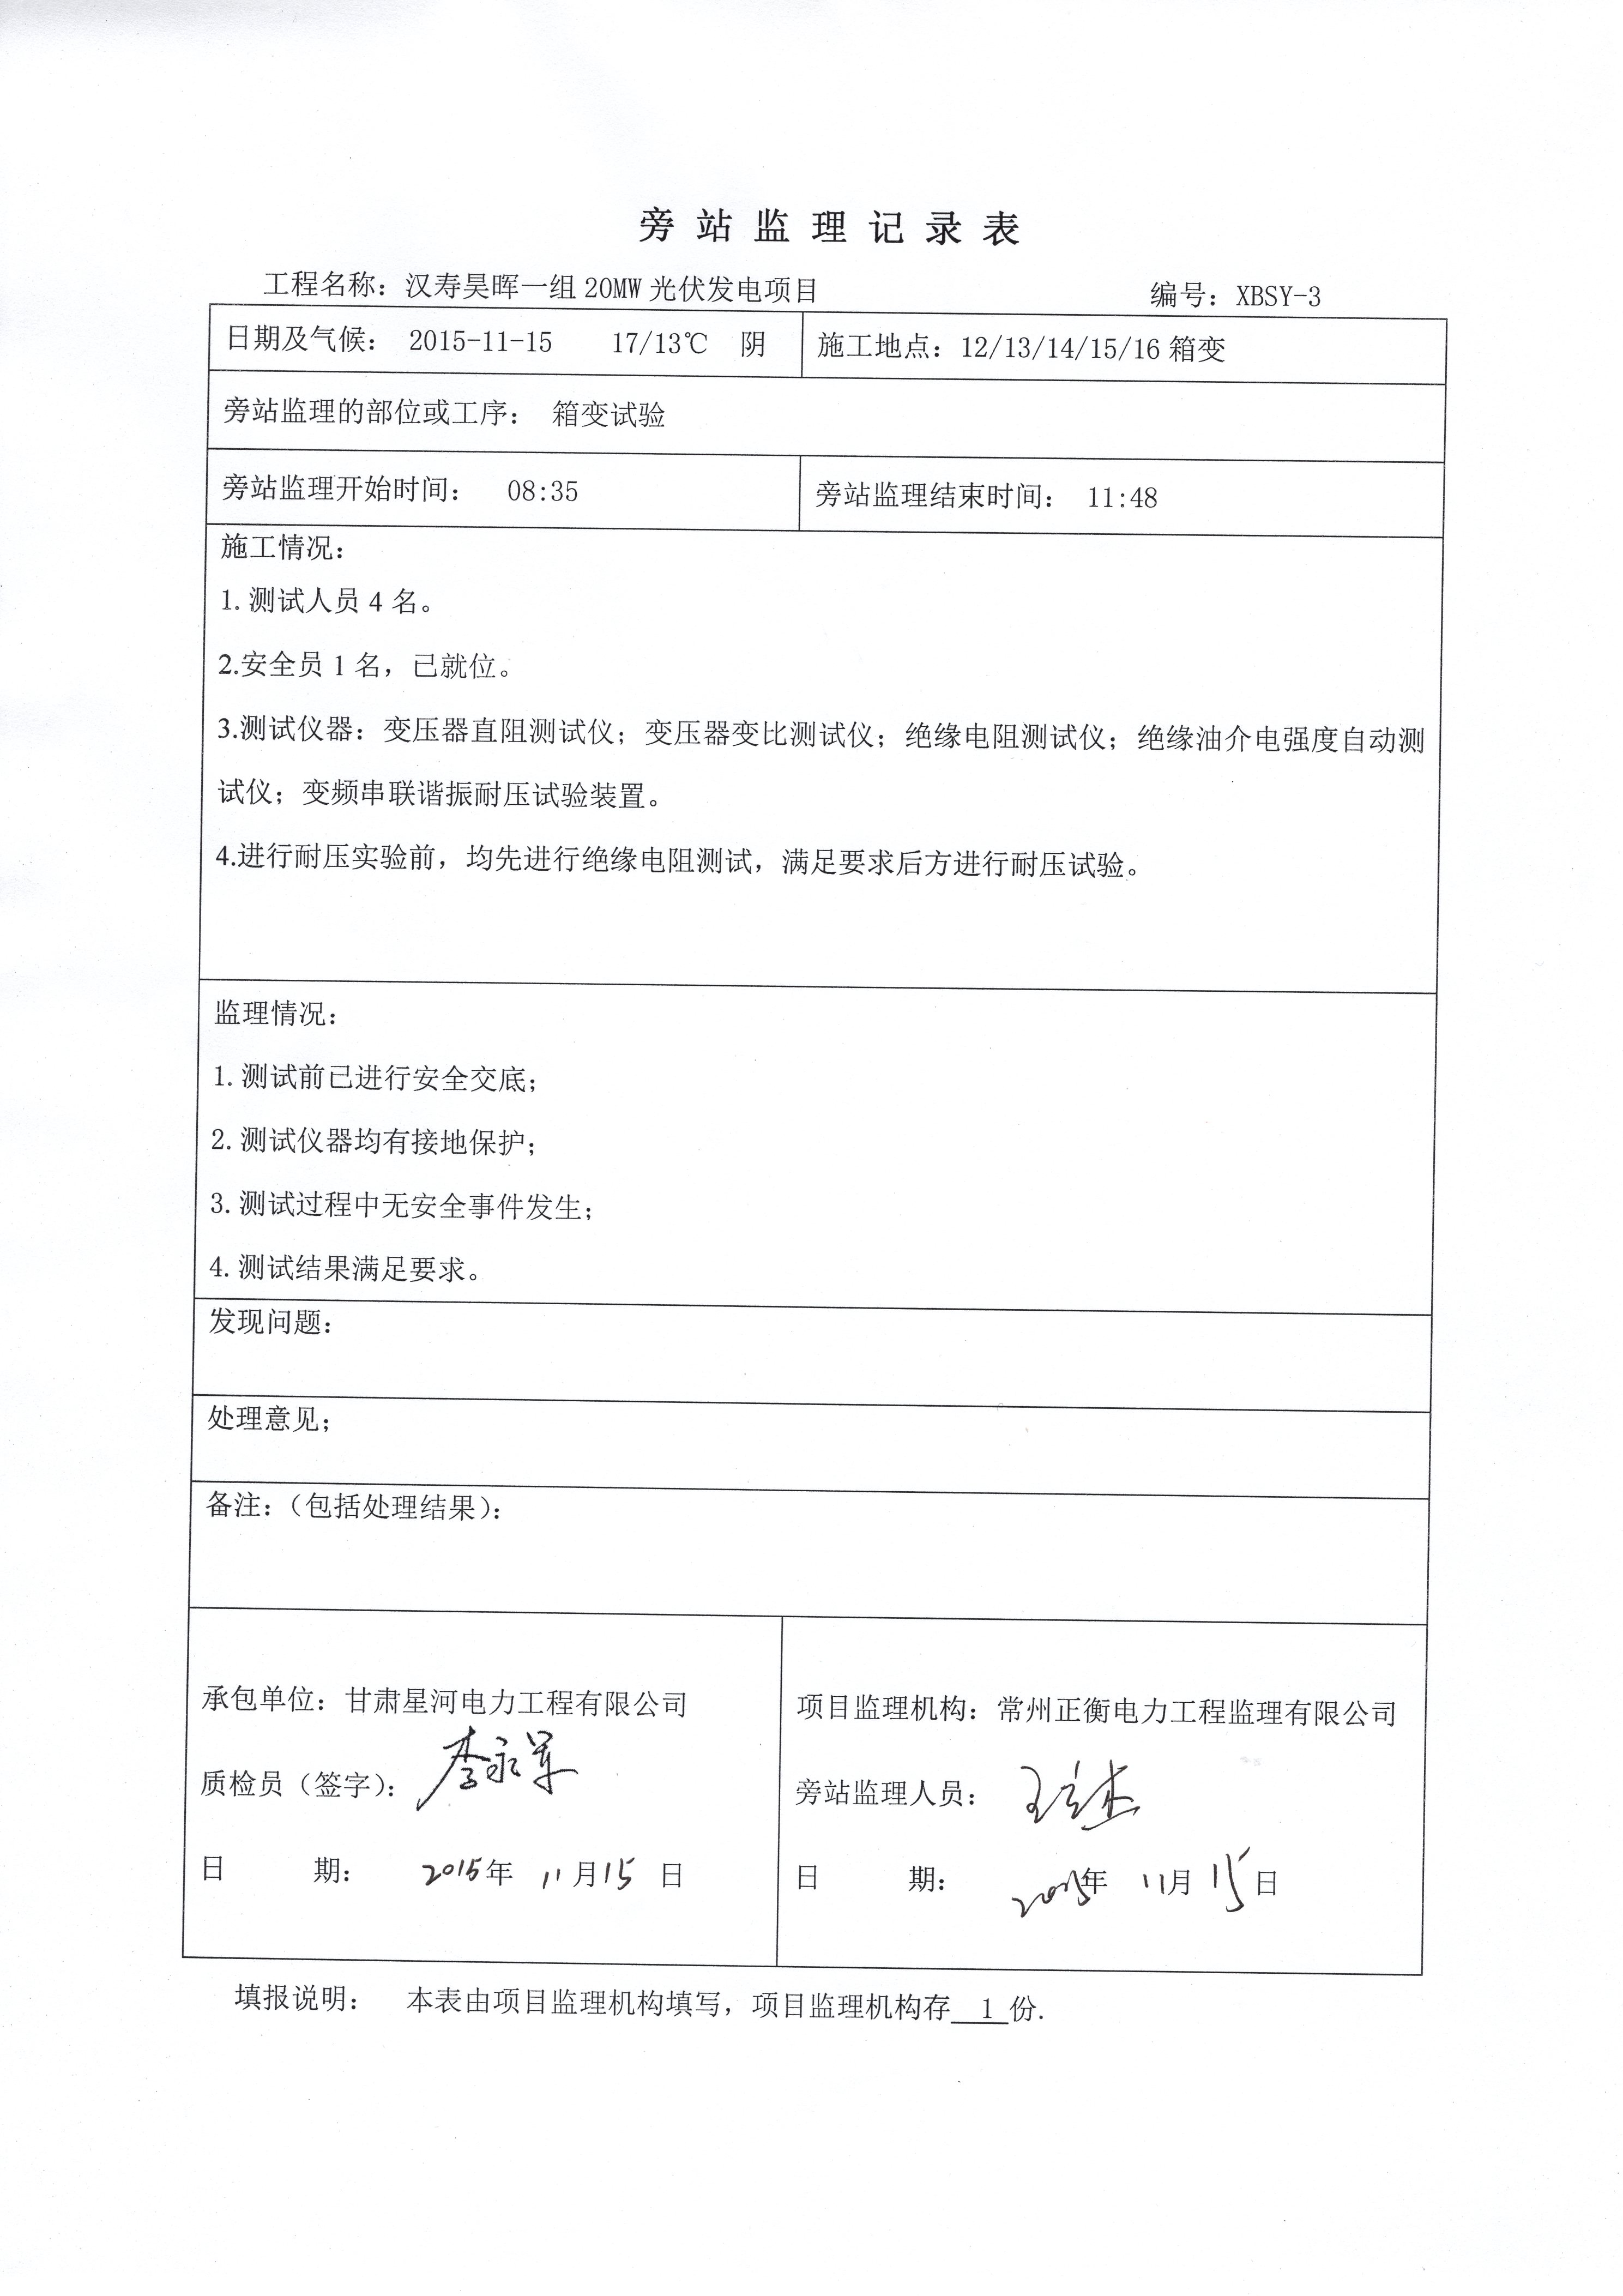 旁站监理记录表
工程名称：汉寿昊晖一组 20MW 光伏发电项目 编号：XBSY-3
日期及气候： 2015-11-15 17/13℃ 阴 施工地点：12/13/14/15/16 箱变
旁站监理的部位或工序： 箱变试验
旁站监理开始时间： 08:35 旁站监理结束时间： 11:48
施工情况：
1. 测试人员 4 名。
2.安全员 1 名，已就位。
3.测试仪器：变压器直阻测试仪；变压器变比测试仪；绝缘电阻测试仪；绝缘油介电强度自动测
试仪；变频串联谐振耐压试验装置。
4.进行耐压实验前，均先进行绝缘电阻测试，满足要求后方进行耐压试验。
监理情况：
1. 测试前已进行安全交底；
2. 测试仪器均有接地保护；
3. 测试过程中无安全事件发生；
4. 测试结果满足要求。
发现问题：
处理意见；
备注：（包括处理结果）：
承包单位：甘肃星河电力工程有限公司 项目监理机构：常州正衡电力工程监理有限公司
质检员（签字）：李永军 旁站监理人员：
日 期： 2015年 11月15 日 日 期： 2015年 11月15日
填报说明： 本表由项目监理机构填写，项目监理机构存 1 份.